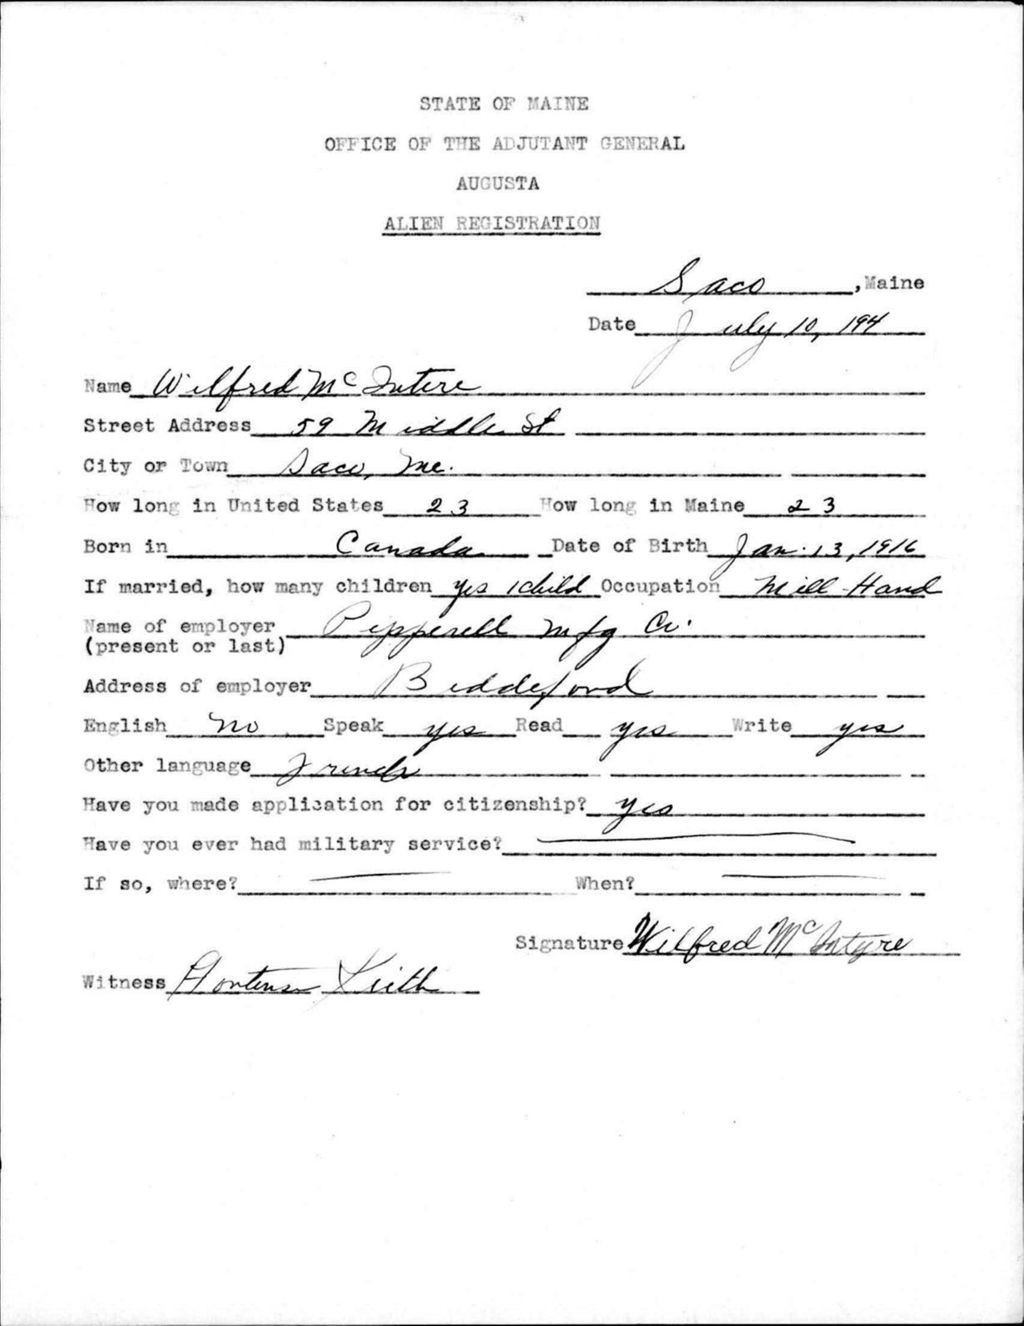 STATE OF MAINE
OFFICE OF THE ADJUTANT GENERAL
AUGUSTA
ALIEN REGISTRATION
Saco, Maine
Date July 10, 194
Name Wilfred McIntire
Street Address 59 Middle St
City or Town Saco, Me.
How long in United States 23 How long in Maine 23
Born in Canada Date of Birth Jan. 13, 1916
If married, how many children yes 1 child Occupation Mill-Hand
Name of employer Pepperell Mfg Co.
(present or last)
Address of employer Biddeford
English No Speak yes Read yes Write yes
Other language French
Have you made application for citizenship? yes
Have you ever had military service?
If so, where? When?
Signature Wilfred McIntyre
Witness Hortense Keith